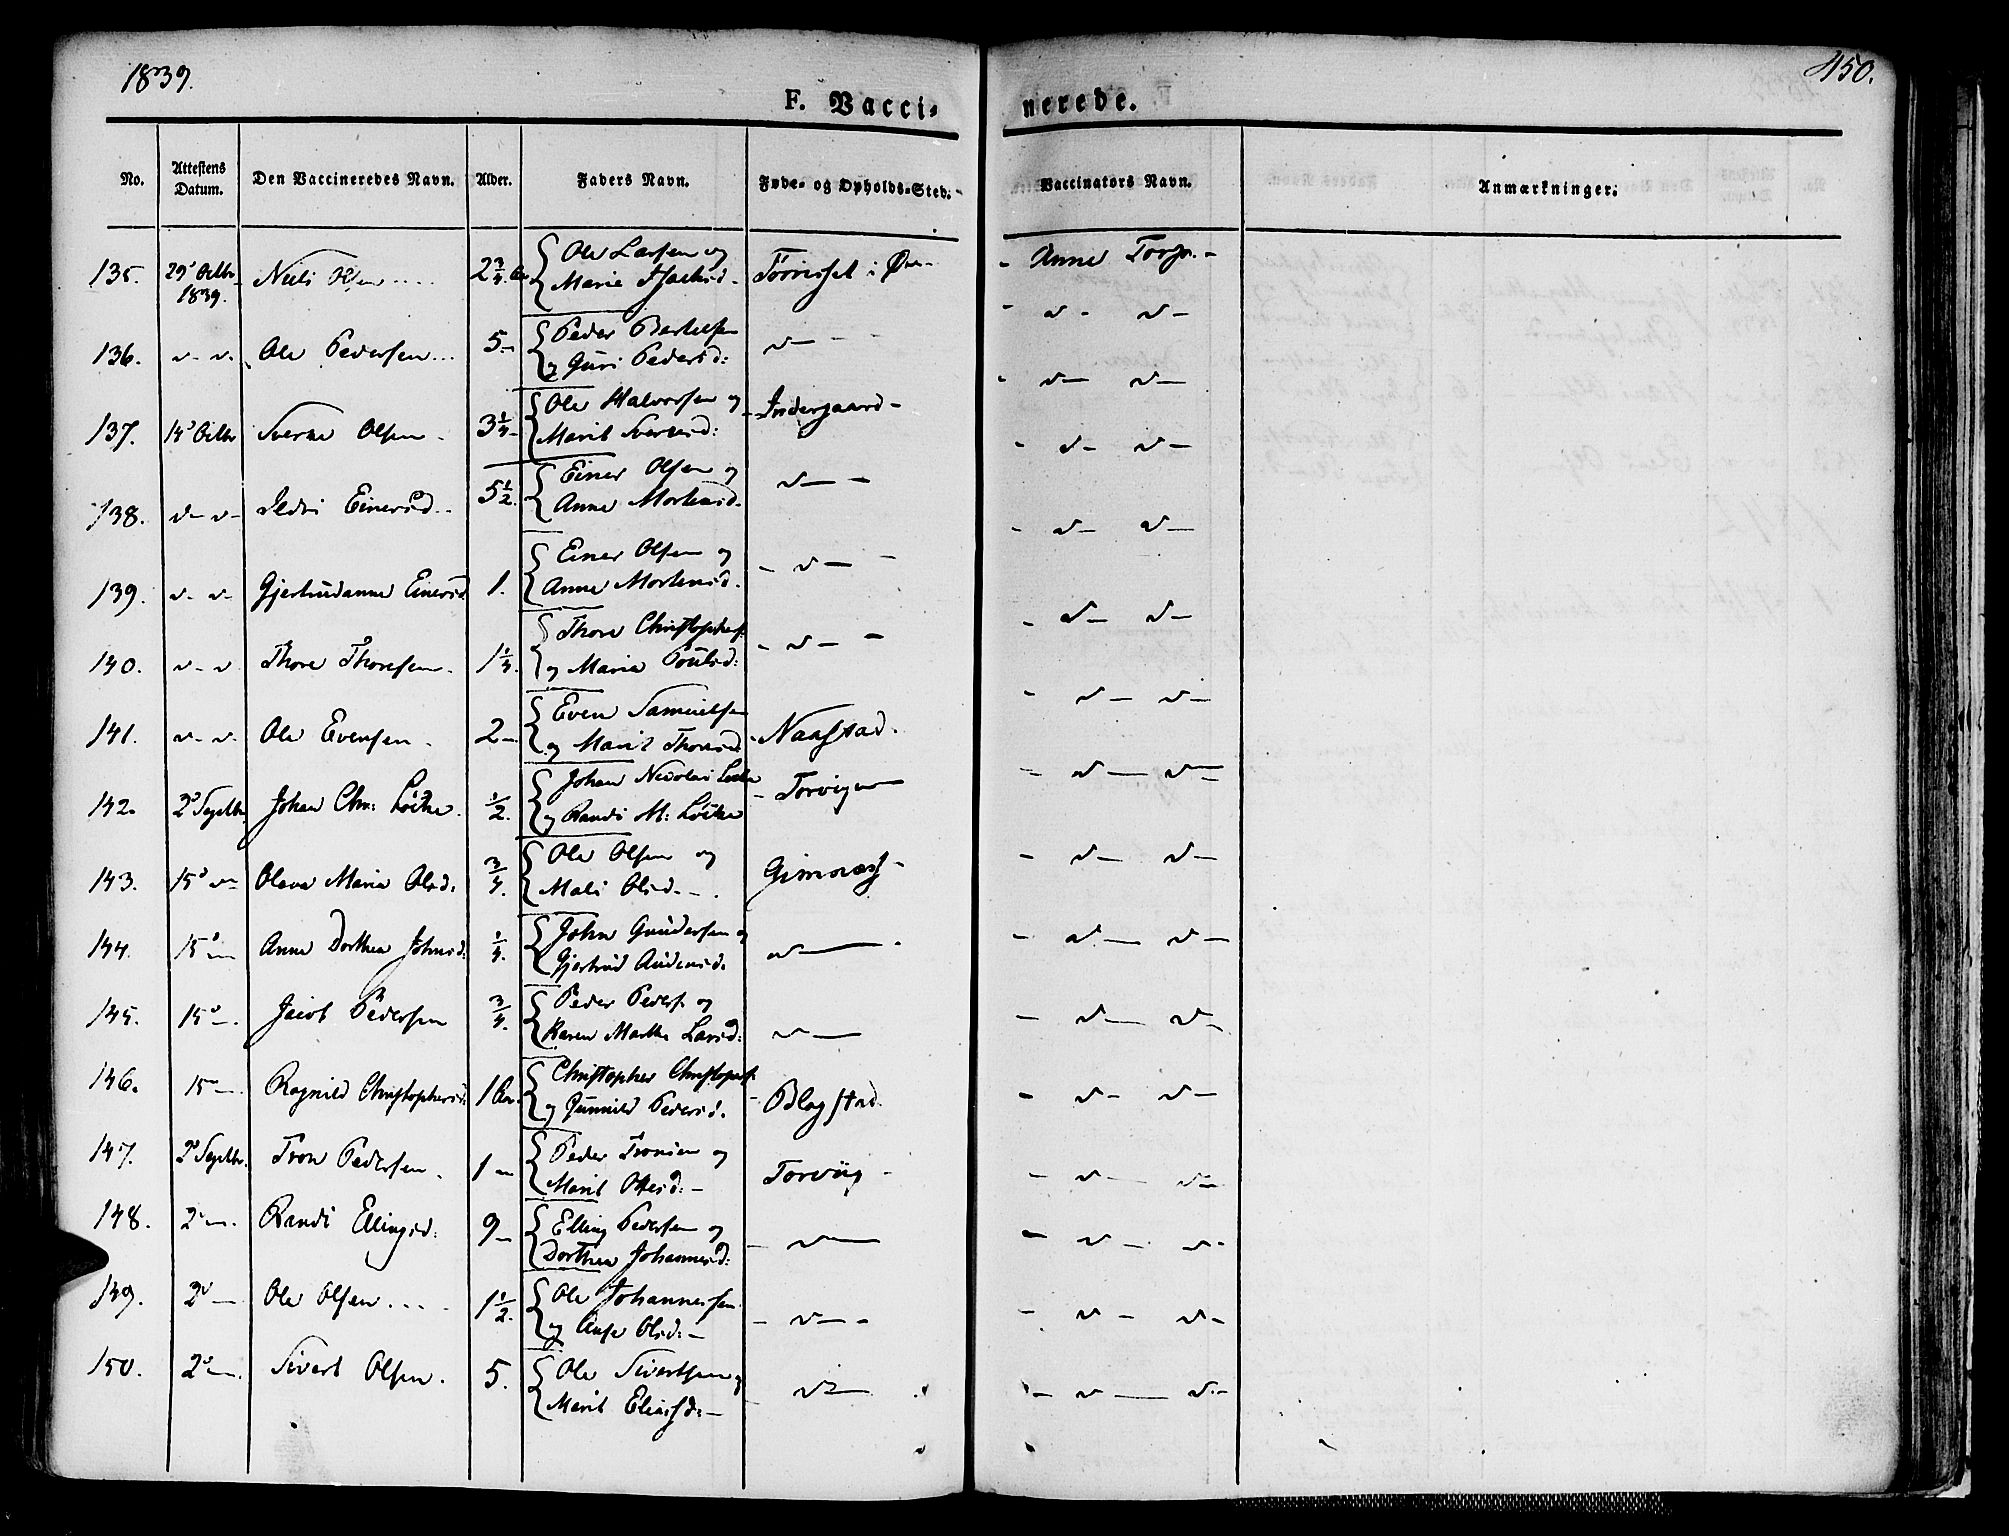 1839.
450.
F. Vacci-
nerede.
No. Attestens Datum. Den Vaccineredes Navn. Alder. Faders Navn. Føde- og Opholds-Sted. Vaccinators Navn. Anmærkninger.
135. 29d Octbr 1839. Niels Olsen .... 2 3/4 { Ole Larsen og
Marie - i - Anne -
136. v- v. Ole Pedersen... 5- { Peder Bertelsen
og Guri Pedersd: v- - v- v-
137. 14d Octbr Sverke Olsen - 3 1/4- { Ole Halvorsen og
Marit Sverkesd: Indergaard- - v- v-
138. v- v- Einersd.. 5 1/2. { Einer Olsen og
Anne Mortensd. v- - - v- v-
139. v- v- Gjertrudanne Einersd 1. { Einer Olsen og
Anne Mortensd. - v- - - v- v-
140. v- v Thore Thoresen. 1 1/4. { Thore Christophers.
og Maria Poulsd: - v- - - v- v-
141. v- v. Ole Evensen . 2- { Even Samuelsen
og Marit Thoresd - - v- v-
142. 2d Septbr. Johan Chr: Løcke. 1/2. { Johan Nicolai Løcke
og Randi M: Løcke - Torvigen - v- v-
143. 15d v- Olava Maria Olsd. 3/4. { Ole Olsen og
Mali Olsd. - . Gimnæs - - v- v-
144. 15d - Anne Dorthea Johnsd. 1/4. { John Gundersen og
Gjertrud Andersd. v- - v- v-
145. 15d -. Jacob Pedersen 3/4. { Peder Peders. og
Karen Marthe Larsd: v- - v- v-
146. 15d -. Ragnild Christophersd. 1 Aar. { Christopher Christophers.
og Gunnild Pedersd. Blegstad - v- v-
147. 2d Septbr. Tron Pedersen. 1- { Peder Tronsen og
Marit Ottesd:- Torviig - - v- v-
148. 2d -. Randi Ellingsd: 9- { Elling Pedersen og
Dorthea Johannesd: - v- - v- v-
149. 2d - Ole Olsen ... . 1 1/2. { Ole Johannesen
og Olsd:- - v- - - v- v-
150. 2d -. Sivert Olsen. 5. { Ole Sivertsen og
Marit Eliasd:- v- - v- v-